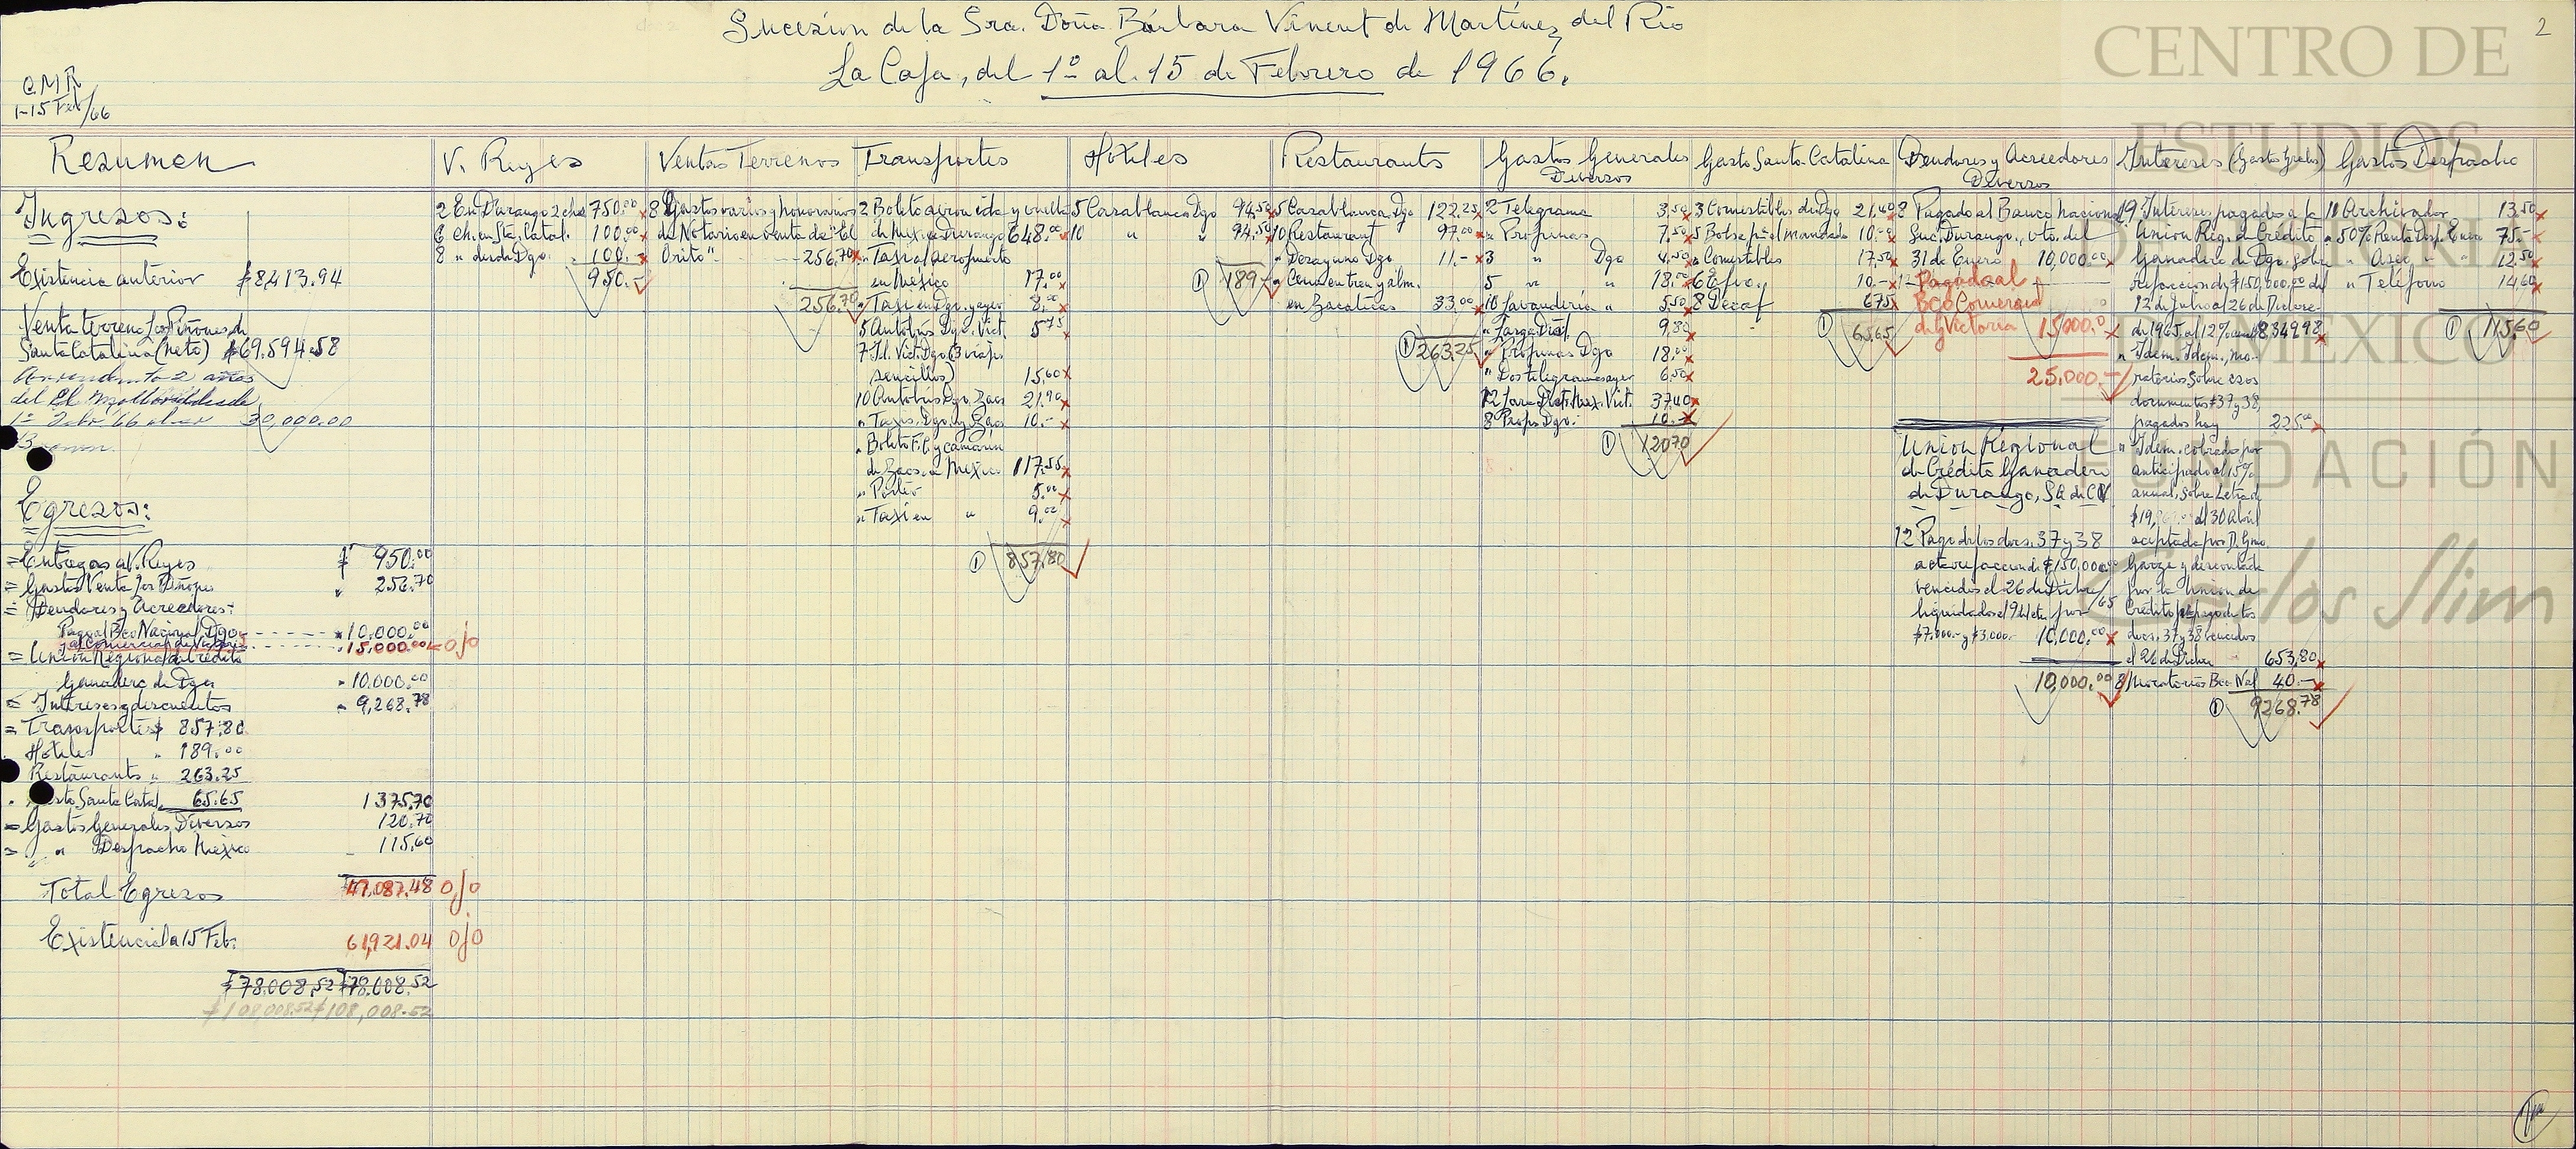 2
Sucesion de la Sra. Doña Bárbara Vinent de Martínez del Río
La Caja, del 1º al 15 de Febrero de 1966.
CMR
1-15 Feb/66
CENTRO DE
ESTUDIOS
DE HISTORIA
DE MÉXICO
FUNDACIÓN
Carlos Slim
Resumen
Ingresos:
Existencia anterior $8,413.94
Venta terreno Los Piñones de
Santa Catalina (neto) $69.594.58
2 años
del El
1º Feb 66 30,000.00
Egresos:
= Entregas a V. Reyes $ 950.00
= Gastos Venta Los Piñones " 256.70
= Deudores y Acreedores:
Pago al Bco Nacional Dgo. - - - - " 10,000.00
" al Comercial de Victoria - - - - " 15,000.00 ojo
= Unión Regional de Crédito
Ganadero de Dgo " 10.000.00
= Intereses y descuentos " 9,268.78
= Transportes $ 857.80
Hoteles " 189.00
Restaurants " 263.25
Gasto Santa Catal. 65.65 1375.70
= Gastos Generales Diversos 120.70
= " Despacho México 115.60
Total Egresos 47,087.48 ojo
Existencia a 15 Feb: 61,921.04 ojo
$78.008.52 $78.008.52
$108,008.52 $108,008.52
V. Reyes
2 En Durango 2 chs 750.00
6 ch. en Sta. Catal. 100.00
8 " desde Dgo. 100.-
950.-
Ventas Terrenos
8 Gastos varios y honorarios
de Notario en venta de "El
Orito" - - - 256.70
256.70
Transportes
2 Boleto avion ida y vuelta
de Mex. a Durango 648.00
" Taxi al aeropuerto
en México 17.00
" Taxi en Dgo. y ayer 8.00
5 Autobús Dgo. Vict. 5.75
7 Id. Vict. Dgo (3 viajes
sencillos) 15.60
10 Autobús Dgo. Zacs 21.90
" Taxis, Dgo. y Zacs 10.-
" Boleto F.C. y camarín
de Zacs. a Mexico 117.55
" Porter 5.00
" Taxi en " 9.00
① 857.80
Hoteles
5 Casablanca Dgo 94.50
10 " " 94.50
① 189.-
Restaurants
5 Casablanca Dgo 122.25
10 Restaurant 97.00
" Desayuno Dgo 11.-
" Cena en tren y alm.
en Zacatecas 33.00
① 263.25
Gastos Generales
Diversos
2 Telegrama 3.50
" Propinas 7.50
3 " Dgo 4.50
5 " " 18.00
10 Lavanderia " 5.50
" Larga Dist. 9.80
" Propinas Dgo 18.00
" Dos telegramas ayer 6.50
12 Larga Dist. Mex. Vict. 37.40
8 Props Dgo. 10.-
① 120.70
Gasto Santa Catalina
3 Comestibles de Dgo 21.40
5 Bolsa p'a el mandado 10.00
" Comestibles 17.50
6 10.-
8 Decaf 6.75
① 65.65
Deudores y Acreedores
Diversos
8 Pagado al Banco Nacional
Suc. Durango, vto. del
31 de Enero 10,000.00
12 Pagado al
Bco Comercial
de Victoria 15000.0
25.000.-
Union Regional
de Crédito Ganadero
de Durango, S.A. de C.V.
12 Pago de los docs. 37 y 38
a cta refaccion de $150,000.00
vencidos el 26 de Dicbre/65
liquidados el 9 de éste por
$7.000.- y $3.000.- 10,000.00
10,000.00
Intereses (Gastos Grales)
9 Intereses pagados a la
Union Reg. de Crédito
Ganadero de Dgo. sobre
refaccion de $150,000.00 del
12 de Julio al 26 de Dicbre
de 1965, al 12% anual 8349.98
" Idem. Idem., mo-
ratorios sobre esos
documentos #37 y 38,
pagados hoy 225.00
" Idem. cobrados por
anticipado al 15%
anual, sobre Letra de
del 30 Abril
aceptada por D. Gmo.
Garza y descontada
por la Union de
Crédito p' el pago de los
docs. 37 y 38 vencidos
el 26 de Dicbre 653.80
8 Moratorios Bco. Nal 40.-
① 9268.78
Gastos Despacho
11 Archivador 13.50
" 50% Renta Desp. Enero 75.-
" Aseo " " 12.50
" Teléfono 14.60
① 115.60